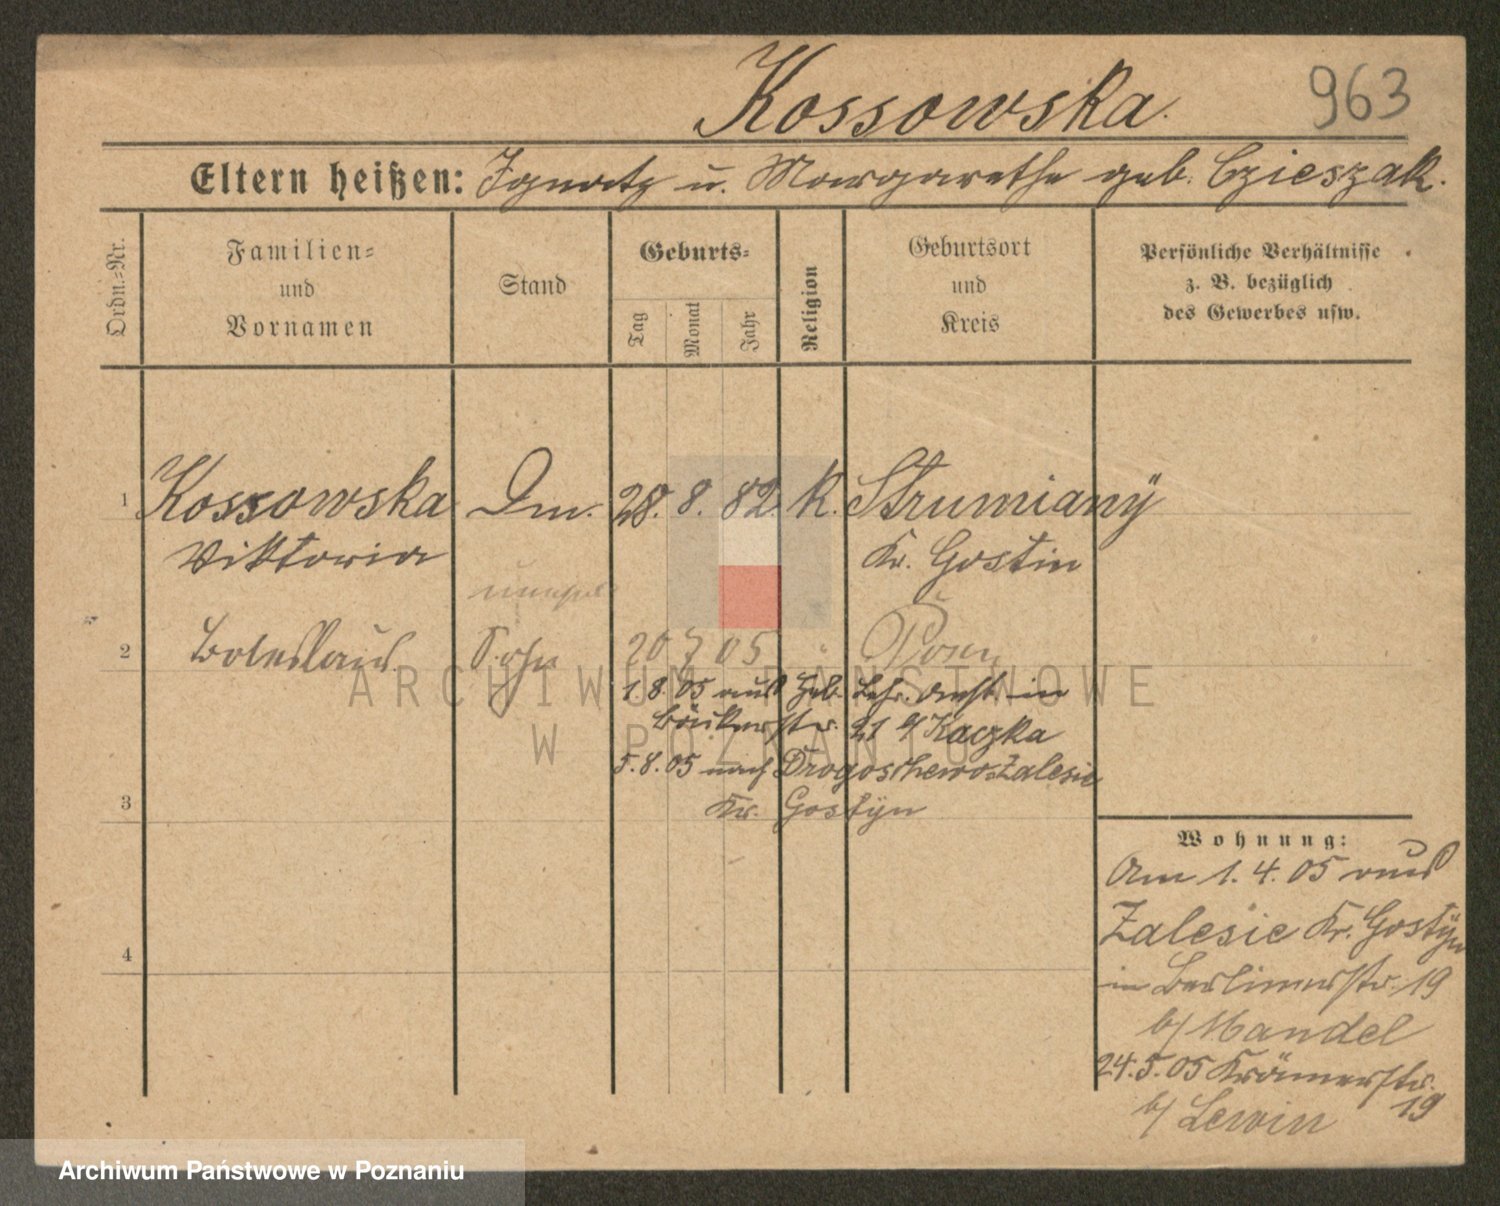 Kossowska.
963
Eltern heißen: Ignatz u. Margarethe geb. Czieszak.
Ordn.-Nr.
Familien-
und
Vornamen
Stand
Geburts-
Tag
Monat
Jahr
Religion
Geburtsort
und
Kreis
Persönliche Verhältnisse
z. B. bezüglich
des Gewerbes usw.
1 Kossowska Dm. 28. 8. 82. k. Strumiany
Viktoria Kr. Gostin
unehel
2 Boleslaus Sohn 20 7 05 " Posen
1.8.05 aus Heb. Lehr. Anst. in
Bäckerstr. 21 b/ Kaczka
5.8.05 nach Drogoschewo Zalesie
3 Kr. Gostÿn
4
Wohnung:
Am 1.4.05 aus
Zalesie Kr. Gostÿn
in Berlinerstr. 19
b/ Mandel
24.5.05 Krämerstr. 19
b/ Lewin
ARCHIWUM PAŃSTWOWE
W POZNANIU
Archiwum Państwowe w Poznaniu